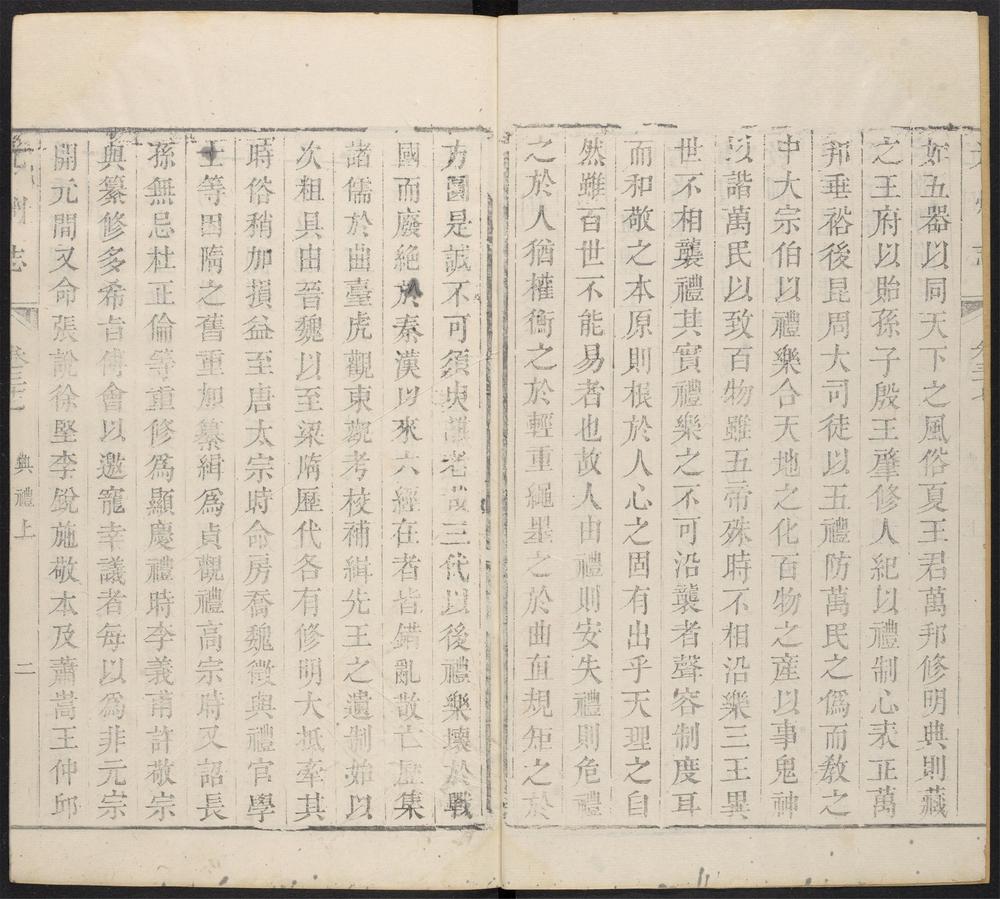 如五器以同天下之風俗夏王君萬邦修明典則藏
之王府以貽孫子殷王肇修人紀以禮制心表正萬
邦垂裕後昆周大司徒以五禮防萬民之僞而敎之
中大宗伯以禮樂合天地之化百物之産以事鬼神
以諧萬民以致百物雖五帝殊時不相沿樂三王異
世不相襲禮其實禮樂之不可沿襲者聲容制度耳
而和敬之本原則根於人心之固有出乎天理之自
然雖百世不能易者也故人由禮則安失禮則危禮
之於人猶權衡之於輕重繩墨之於曲直規矩之於
方圓是誠不可須臾離者哉三代以後禮樂壞於戰
國而廢絶於秦漢以來六經在者皆錯亂散亡歷集
諸儒於曲臺虎觀東觀考校補緝先王之遺制始以
次粗具由晉魏以至梁隋歷代各有修明大抵牽其
時俗稍加損益至唐太宗時命房喬魏徵與禮官學
士等因隋之舊重加纂緝爲貞觀禮高宗時又詔長
孫無忌杜正倫等重修爲顯慶禮時李義甫許敬宗
與纂修多希旨傅會以邀寵幸議者每以爲非元宗
開元間又命張說徐堅李銳施敬本及蕭嵩王仲邱
志 卷三十七 典禮上 二